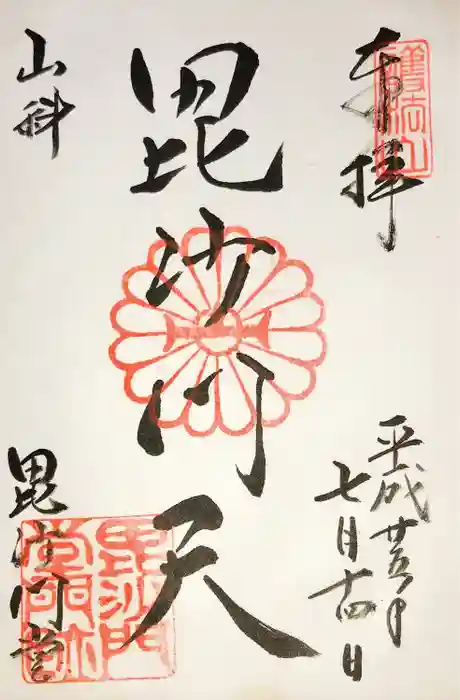 奉拝
護法山
平成廿五年
七月十四日
毘沙門天
山科
毘沙門堂
毘沙門堂門跡